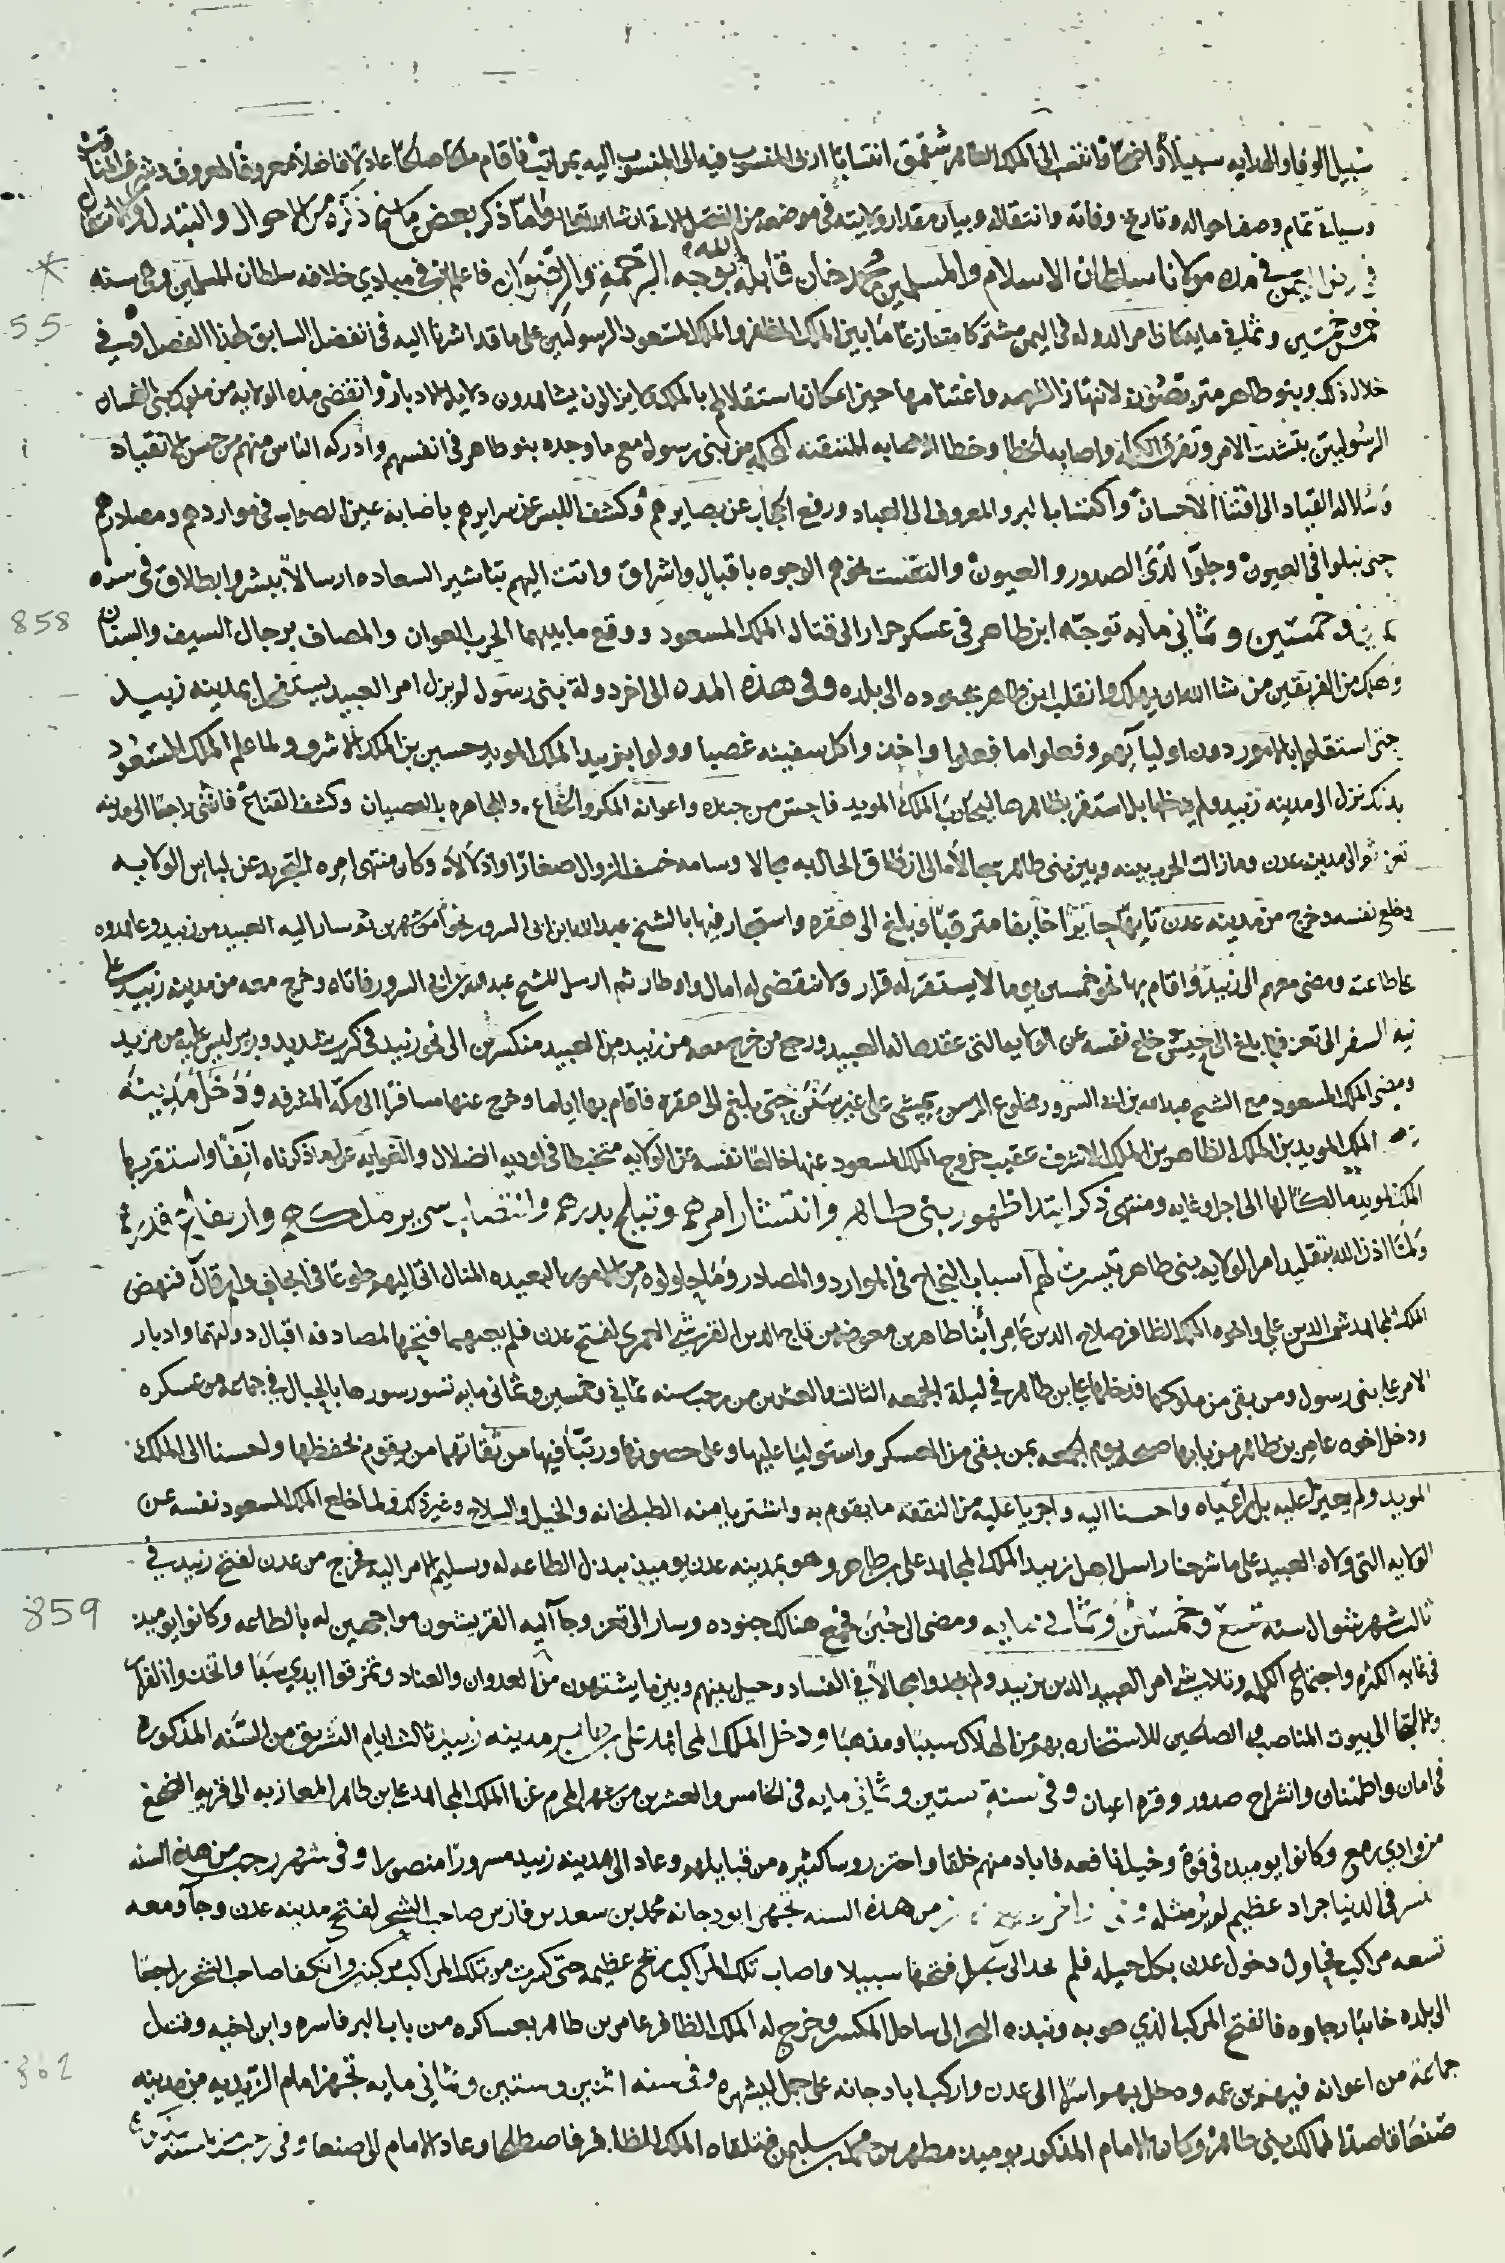 سبيل الوفا والهدايه سبيلاً واضحاً فانتصب الى الملك الظاهر انتسابًا ادنى المنسوب فيه الى المنسوب اليه بمراتب فاقام ملكا صالحًا عادلا فاضلا معروفًا بالمعروف وشرف المناقب
وسياتى تمام وصف احواله وتاريخ وفاته وانتقاله وبيان مقدار ولايته فى موضعه من الفصل الاتى ان شا الله تعالى واما ذكر بعض ما ذكره من الاحوال والتبدل والانتقال
فى زمن اليمن فى مدة مولانا سلطان الاسلام والمسلمين محمد خان قابله الله بوجه الرحمة والرضوان فاعلم ان فى مبادي خلافه سلطان المسلمين فى سنه
خمس وخمسين وثمانى مايه كان امر الدوله فى اليمن مشتركا متنازعًا ما بين الملك المظفر والملك المسعود الرسوليين على ما قد اشرنا اليه فى الفصل السابق لهذا الفصل وفى
خلال ذلك وبنو طاهر متربصون لانتهاز الفرصه واغتنامها حين امكان استقلالهم بالملك لا يزالون يشاهدون دلايل الادبار وانقضى مده الولايه من ملوك بنى الغسان
الرسوليين بتشتت الامر وتفرق الكلمه واصابه الخطا وخطا الاصابه المتنقنه الحكمه من بنى رسول مع ما وجده بنو طاهر فى انفسهم وادركه الناس منهم من حسن الانقياد
وسلاله القياد الى اقتنا الاحسان واكتساب البر والمعروف الى العباد ورفع الحجاب عن بصايرهم وكشف اللبس عن سرايرهم باصابة عين الصواب فى مواردهم ومصادرهم
حتى نبلوا فى العيون وجلوا لدى الصدور والعيون والتفتت نحوهم الوجوه باقبال واشراق واتت اليهم تباشير السعاده ارسالاً ببشر وانطلاق فى سنه
ثمان وخمسين وثمانى مايه توجّه ابن طاهر فى عسكر جرار الى قتال الملك المسعود ووقع ما بينهما الحرب العوان والمصاف برجال السيف والسنان
وهلك من الفريقين من شا الله ان يهلك وانقلب ابن طاهر بجنوده الى بلده وفى هذه المده الى اخر دولة بنى رسول لم يزل امر العبيد يستفحل بمدينه زبيد
حتى استقلوا بالامور دون اوليآئهم وفعلوا ما فعلوا واخذوا كل سفينه غصبا وولوا بزبيد الملك المويد حسين بن الملك الاشرف ولما علم الملك المسعود
بذلك نزل الى مدينه زبيد ولم يدخلها بل استقر بظاهرها ليحارب الملك المويد فاحس من جنده واعوانه المكر والخداع والمجاهره بالعصيان وكشف القناع فانثنى راجعًا الى مدينه
تعز ثم الى مدينه عدن وما زالت الحرب بينه وبين بنى طاهر سجالا الى ان ضاق الحال به مجالا وسامه خسف الزوال صغارًا واذلالا وكان منتهى امره التجرد عن لباس الولايه
وخلع نفسه وخرج من مدينه عدن تايها حايرًا خايفا مترقبا وبلغ الى هقره واستجار فيها بالشيخ عبدالله ابن ابى السرور نحوًا من شهرين ثم سار اليه العبيد من زبيد وعاهدوه
على طاعته ومضى معهم الى زبيد واقام بها نحو خمسين يوما لا يستقر له قرار ولا تنقضى له امال واوطار ثم ارسل للشيخ عبد الله بن ابى السرور فاتاه وخرج معه من مدينه زبيد على
نيه السفر الى تعز فلما بلغ الى حيس خلع نفسه عن الولايه التى عقدها له العبيد ورجع من خرج معه من زبيد من العبيد منكسرين الى نحو زبيد فى كرب شديد وبوس ليس عليه من مزيد
ومضى الملك المسعود مع الشيخ عبدالله بن ابى السرور مخلوع الرسن يمشى على غير سنن حتى بلغ الى هقره فاقام بها اياما وخرج عنها مسافرًا الى مكة المشرفه ودخل مدينة
الملك المويد بن الملك الظاهر بن الملك الاشرف عقيب خروج الملك المسعود عنها خالعًا نفسه عن الولايه متخبطا فى اوديه الضلال والغوايه على ما ذكرناه انفًا واستقر بها
الملك المويد مالكًا لها الى اجل وغايه ومنتهى ذكر ابتدا ظهور بنى طاهر وانتشار امرهم وتبلج بدرهم وانتصاب سرير ملكهم وارتفاع قدرهم
ولما اذن الله بتقليد امر الولايه بنى طاهر تيسرت لهم اسباب النجاح فى الموارد والمصادر وما حاولوه من الامور البعيده المنال اتى اليهم طوعًا فى ايجاف وارقال فنهض
الملك المجاهد شمس الدين على واخوه الملك الظافر صلاح الدين عامر ابنا طاهر بن معوضه بن تاج الدين القرشى العمرى لفتح عدن فلم يعيهما فتحها لمصادفه اقبال دولتهما وادبار
الامر على بنى رسول ومن بقى من ملوكها فدخلها على بن طاهر فى ليلة الجمعه الثالث والعشرين من رجب سنه ثمانى وخمسين وثمانى مايه تسور سورها بالحبال فى جماعه من عسكره
ودخل اخوه عامر بن طاهر من بابها صبح يوم الجمعه بمن بقى من العسكر واستوليا عليها وعلى حصونها ورتبا فيها من ثقاتهما من يقوم بحفظها واحسنا الى الملك
المويد ولم يجيزا عليه بل راعياه واحسنا اليه واجريا عليه من النفقه ما يقوم به واشتريا منه الطبلخانه والخيل والسلاح وغير ذلك ولما خلع الملك المسعود نفسه عن
الولايه التى ولاه العبيد على ما شرحنا راسل اهل زبيد الملك المجاهد على بن طاهر وهو بمدينه عدن يوميذ ببذل الطاعه له وتسليم الامر اليه فخرج من عدن لفتح زبيد فى
ثالث شهر شوال سنة تسع وخمسين وثمانى مايه ومضى الى حبن فجمع هنالك جنوده وسار الى تعز وجآ اليه القرشيون مواجهين له بالطاعه وكانوا يوميذ
فى غايه الكثره واجتماع الكلمه وتلاشى امر العبيد الذين بزبيد ولم يجدوا مجالاً فى الفساد وحيل بينهم وبين ما يشتهون من العدوان والعناد وتمزقوا ايدي سبا واتخذوا الفرار
والالتجا الى بيوت المناصب والصالحين للاستجاره بهم من الهلاك سببًا ومذهبًا ودخل الملك المجاهد على بن طاهر مدينه زبيد ثالث ايام التشريق من السنه المذكورة
فى امان واطمنان وانشراح صدور وقره اعيان وفى سنة ستين وثمانى مايه فى الخامس والعشرين من شهر المحرم غزا الملك المجاهد على بن طاهر المعازبه الى قريه الضجع
من وادي رمع وكانوا يوميذ فى قوة وخيل نافعه فاباد منهم خلقا واحتز روسا كثيره من قبايلهم وعاد الى مدينه زبيد مسرورًا منصورا وفى شهر رجب من هذه السنه
انتشر فى الدنيا جراد عظيم لم يُر مثله وفى اخر من هذه السنه تجهز ابو دجانه محمد بن سعد بن فارس صاحب الشحر لفتح مدينه عدن وجآ ومعه
تسعه مراكب فحاول دخول عدن بكل حيله فلم يجد الى سبيل فتحها سبيلا واصاب تلك المراكب ريح عظيمه حتى كسرت من تلك المراكب مركبين وانكفا صاحب الشحر راجعًا
الى بلده خائبًا رجاوه فانفتح المركب الذي هو به ونبذه البحر الى ساحل المكسر وخرج له الملك الظافر عامر بن طاهر بعساكره من باب البر فاسره وابن اخيه وقتل
جماعة من اعوانه فيهم بن عمه ودخل بهم اسرًا الى عدن واركب ابا دجانه على جمل للشهره وفى سنه اثنين وستين وثمانى مايه تجهز امام الزيديه من مدينه
صنعا قاصدًا لممالك بنى طاهر وكان الامام المذكور يوميذ مطهر بن محمد بن سليمن فتلقاه الملك الظافر فاصطلحا وعاد الامام الى صنعا وفى رجب من
55
858
859
862